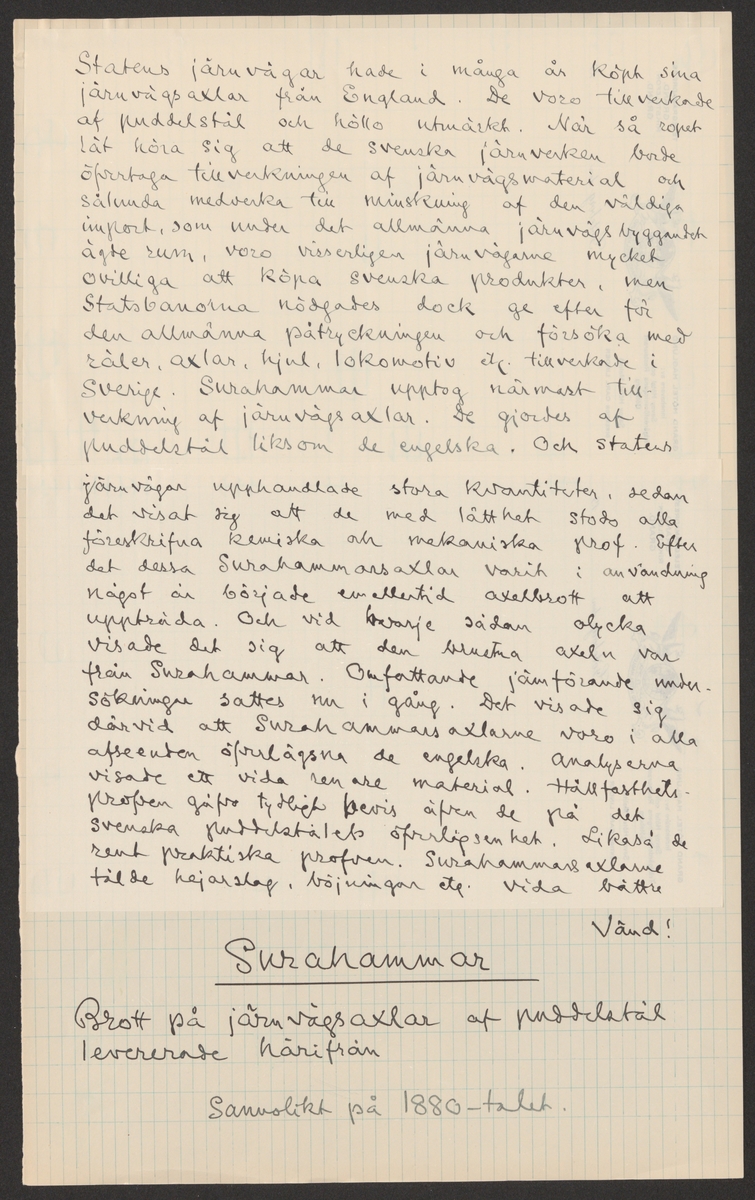 Statens järnvägar hade i många år köpt sina
järnvägsaxlar från England. De voro tillverkade
af puddelstål och höllo utmärkt. När så ropet
lät höra sig att de svenska järnverken borde
öfvertaga tillverkningen af järnvägsmaterial och
sålunda medverka till minskning af den väldiga
import, som under det allmänna järnvägsbyggandet
ägde rum, voro visserligen järnvägarne mycket
ovilliga att köpa svenska produkter, men
Statsbanorna nödgades dock ge efter för
den allmänna påtryckningen och försöka med
räler, axlar, hjul, lokomotiv etc. tillverkade i
Sverige. Surahammar upptog närmast till-
verkning af järnvägsaxlar. De gjordes af
puddelstål liksom de engelska. Och Statens
järnvägar upphandlade stora kvantiteter, sedan
det visat sig att de med lätthet stodo alla
föreskrifna kemiska och mekaniska prof. Efter
det dessa Surahammarsaxlar varit i användning
något år började emellertid axelbrott att
uppträda. Och vid hvarje sådan olycka
visade det sig att den brustna axeln var
från Surahammar. Omfattande jämförande under-
sökningar sattes nu i gång. Det visade sig
därvid att Surahammarsaxlarne voro i alla
afseenden öfverlägsna de engelska. Analyserna
visade ett vida renare material. Hållfasthets-
profven gåfvo tydligt bevis äfven de på det
svenska puddelstålets öfverlägsenhet. Likaså de
rent praktiska profven. Surahammarsaxlarne
tålde hejarslag, böjningar etc. vida bättre
Vänd!
Surahammar
Brott på järnvägsaxlar af puddelstål
levererade härifrån
Sannolikt på 1880-talet.